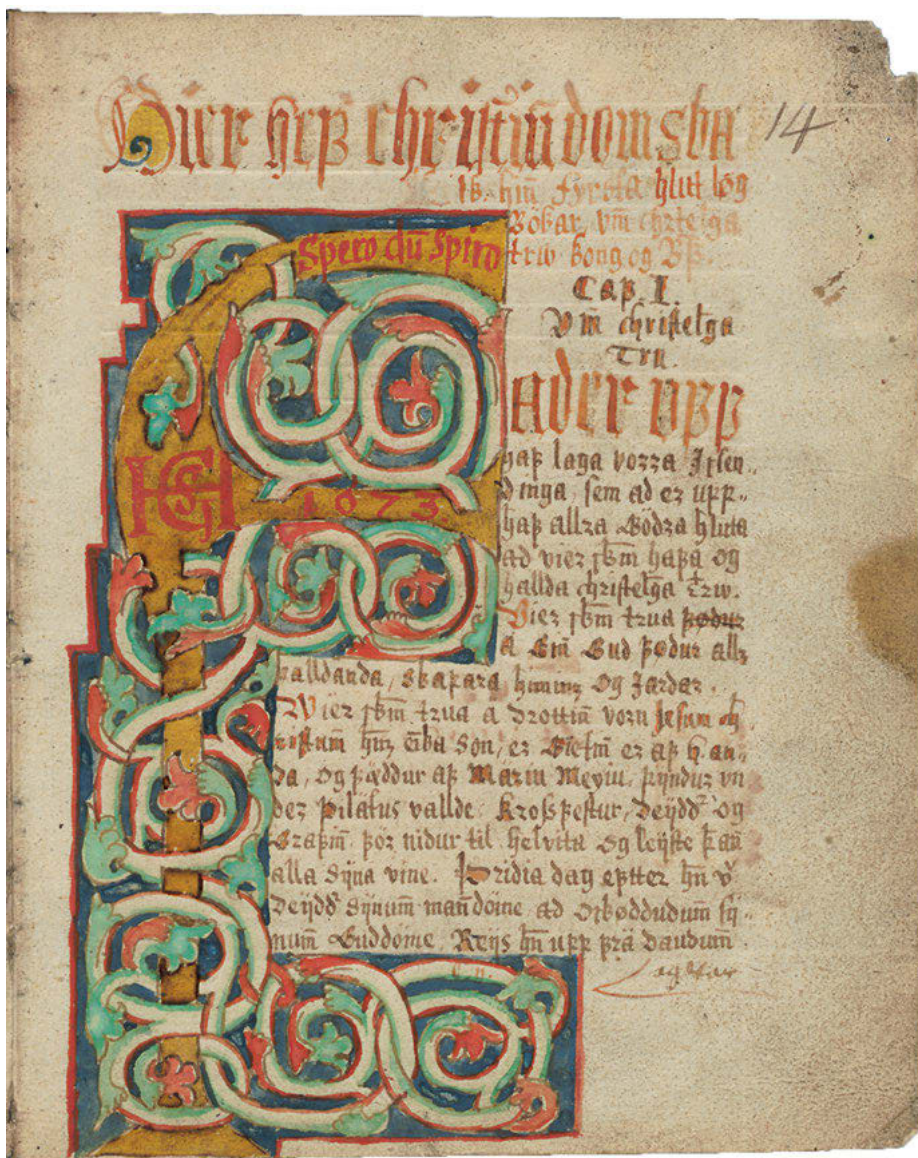 Hier hep Christindomsba
14
lk. hin Fyrsta hlut lög
Bokar, vm chrtelga
trw kong og Bp.
Spero dū Spiro
Cap I.
Vm christelga
Tru.
ader vpp
hap laga vorra Jslen
HGH
1673
dinga, sem ad er upp
hap allra Godra hluta
ad vier skm hapa og
hallda christelga trw.
Vier skm trua podur
a Ein Gud podur all
valldanda, skapara himins og Jardar.
Wier skm trua a drottin vorn Jesum ch
ristum hns son, er Gietin er ap h. an
da, og pæddur ap Mariu Meyiu, pyndur vn
der Pilatus vallde. Krosspestur, Deydd og
Grapin. pór nidur til helvita og leyste þan
alla syna vine. Þridia dag eptter hn v
Deydd synum mandome ad Osköddudum sy
num Guddome. Reis hn upp prä daudum
og